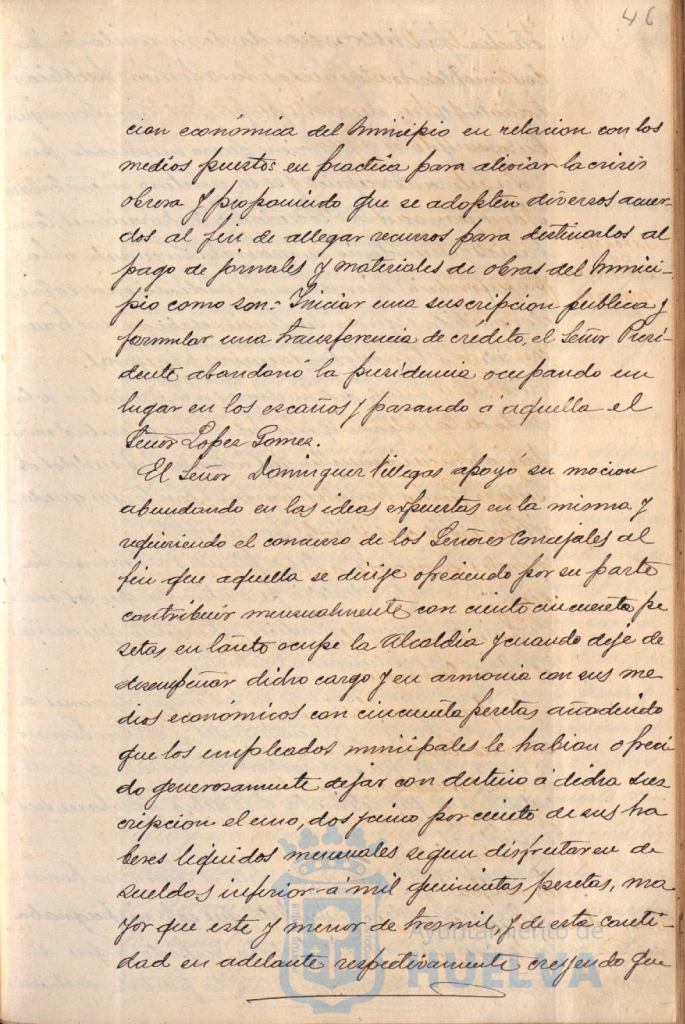 46
cion económica del Municipio en relacion con los
medios puestos en practica para aliviar la crisis
obrera y proponiendo que se adopten diversos acuer-
dos al fin de allegar recursos para destinarlos al
pago de jornales y materiales de obras del Munici-
pio como son: Iniciar una suscripcion publica y
formular una transferencia de crédito, el Señor Presi-
dente abandonó la presidencia ocupando un
lugar en los escaños y pasando á aquella el
Señor Lopez Gomez.
El Señor Dominguez Villegas apoyó su mocion
abundando en las ideas expuestas en la misma y
requiriendo el concurso de los Señores Concejales al
fin que aquella se dirije ofreciendo por su parte
contribuir mensualmente con ciento cincuenta pe
setas en tanto ocupe la Alcaldia y cuando deje de
desempeñar dicho cargo y en armonia con sus me
dios económicos con cincuenta pesetas añadiendo
que los empleados municipales le habian ofreci
do generosamente dejar con destino á dicha sus
cripcion el uno, dos y cinco por ciento de sus ha
beres liquidos mensuales segun disfrutaren de
sueldos inferior á mil quinientas pesetas, ma
yor que este y menor de tres mil, y de esta canti-
dad en adelante respectivamente creyendo que
Ayuntamiento de
HUELVA